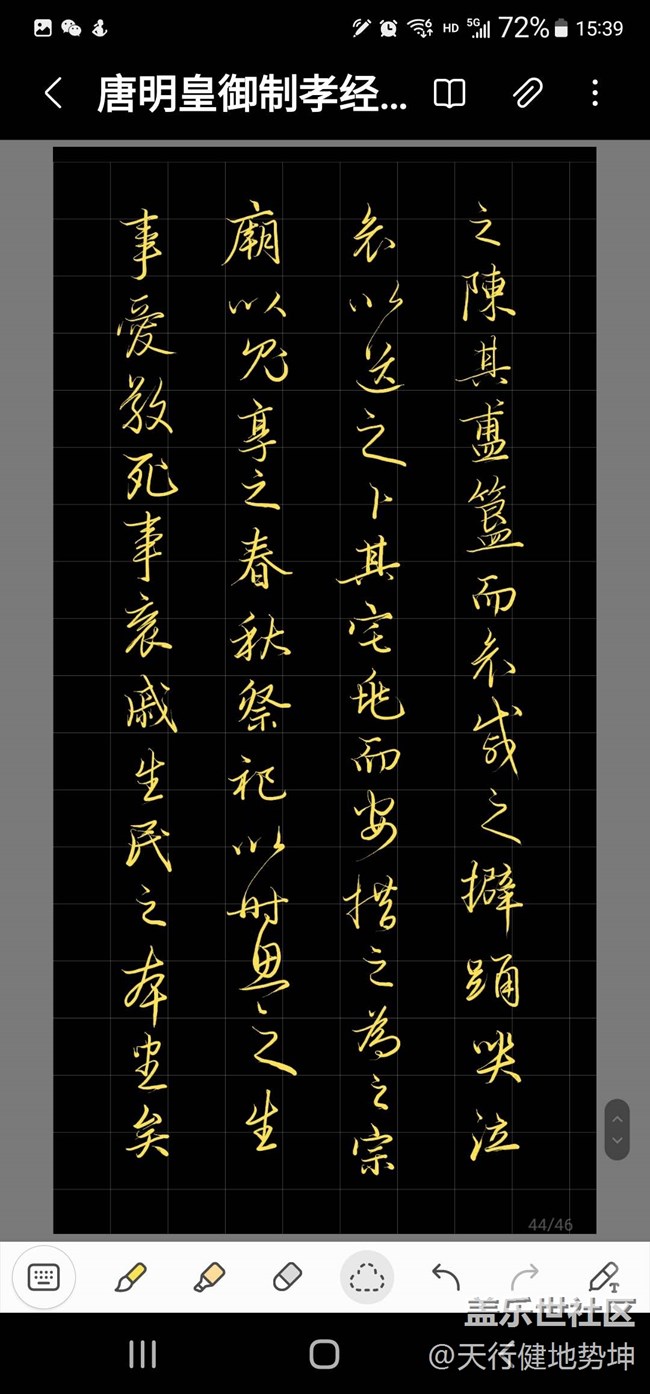 72% 15:39
HD 5G
唐明皇御制孝经...
之陳其盙簋而哀慼之擗踊哭泣
哀以送之卜其宅兆而安措之為之宗
廟以鬼享之春秋祭祀以時思之生
事愛敬死事哀戚生民之本盡矣
44/46
盖乐世社区
@天行健地势坤